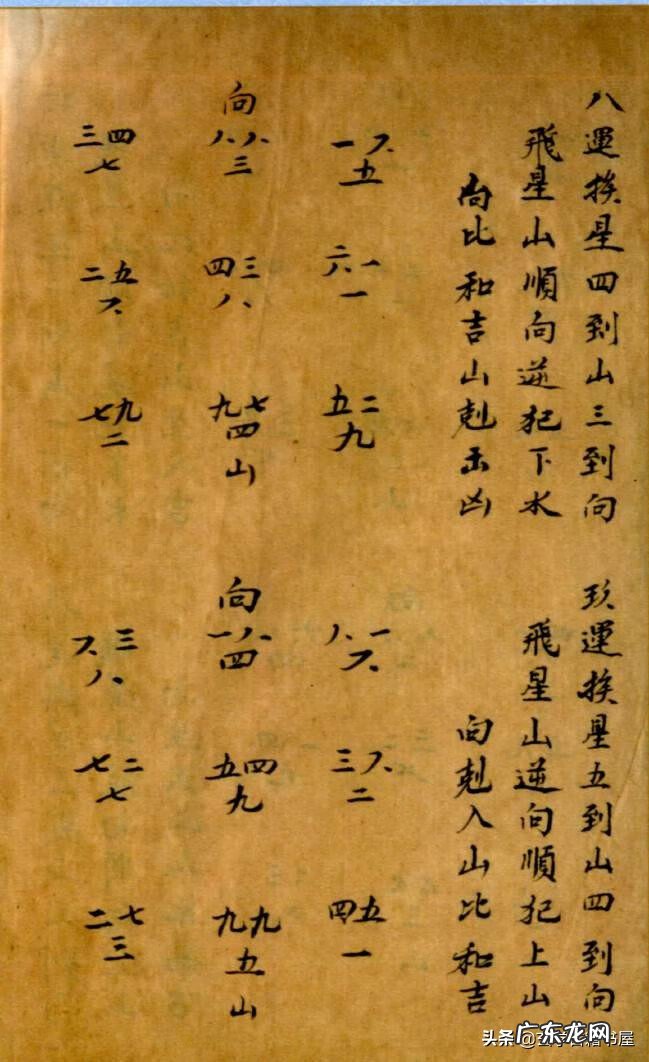 八運挨星四到山三到向
飛星山順向逆犯下水
向比和吉山剋出凶
一六
五
六一
一
五二
九
向
八八
三
四三
八
九七
四
山
三四
七
二五
六
七九
二
玖運挨星五到山四到向
飛星山逆向順犯上山
向剋入山比和吉
八一
六
三六
二
四五
一
向
一八
四
五四
九
九九
五
山
六三
八
七二
七
二七
三
头条
广东龙网